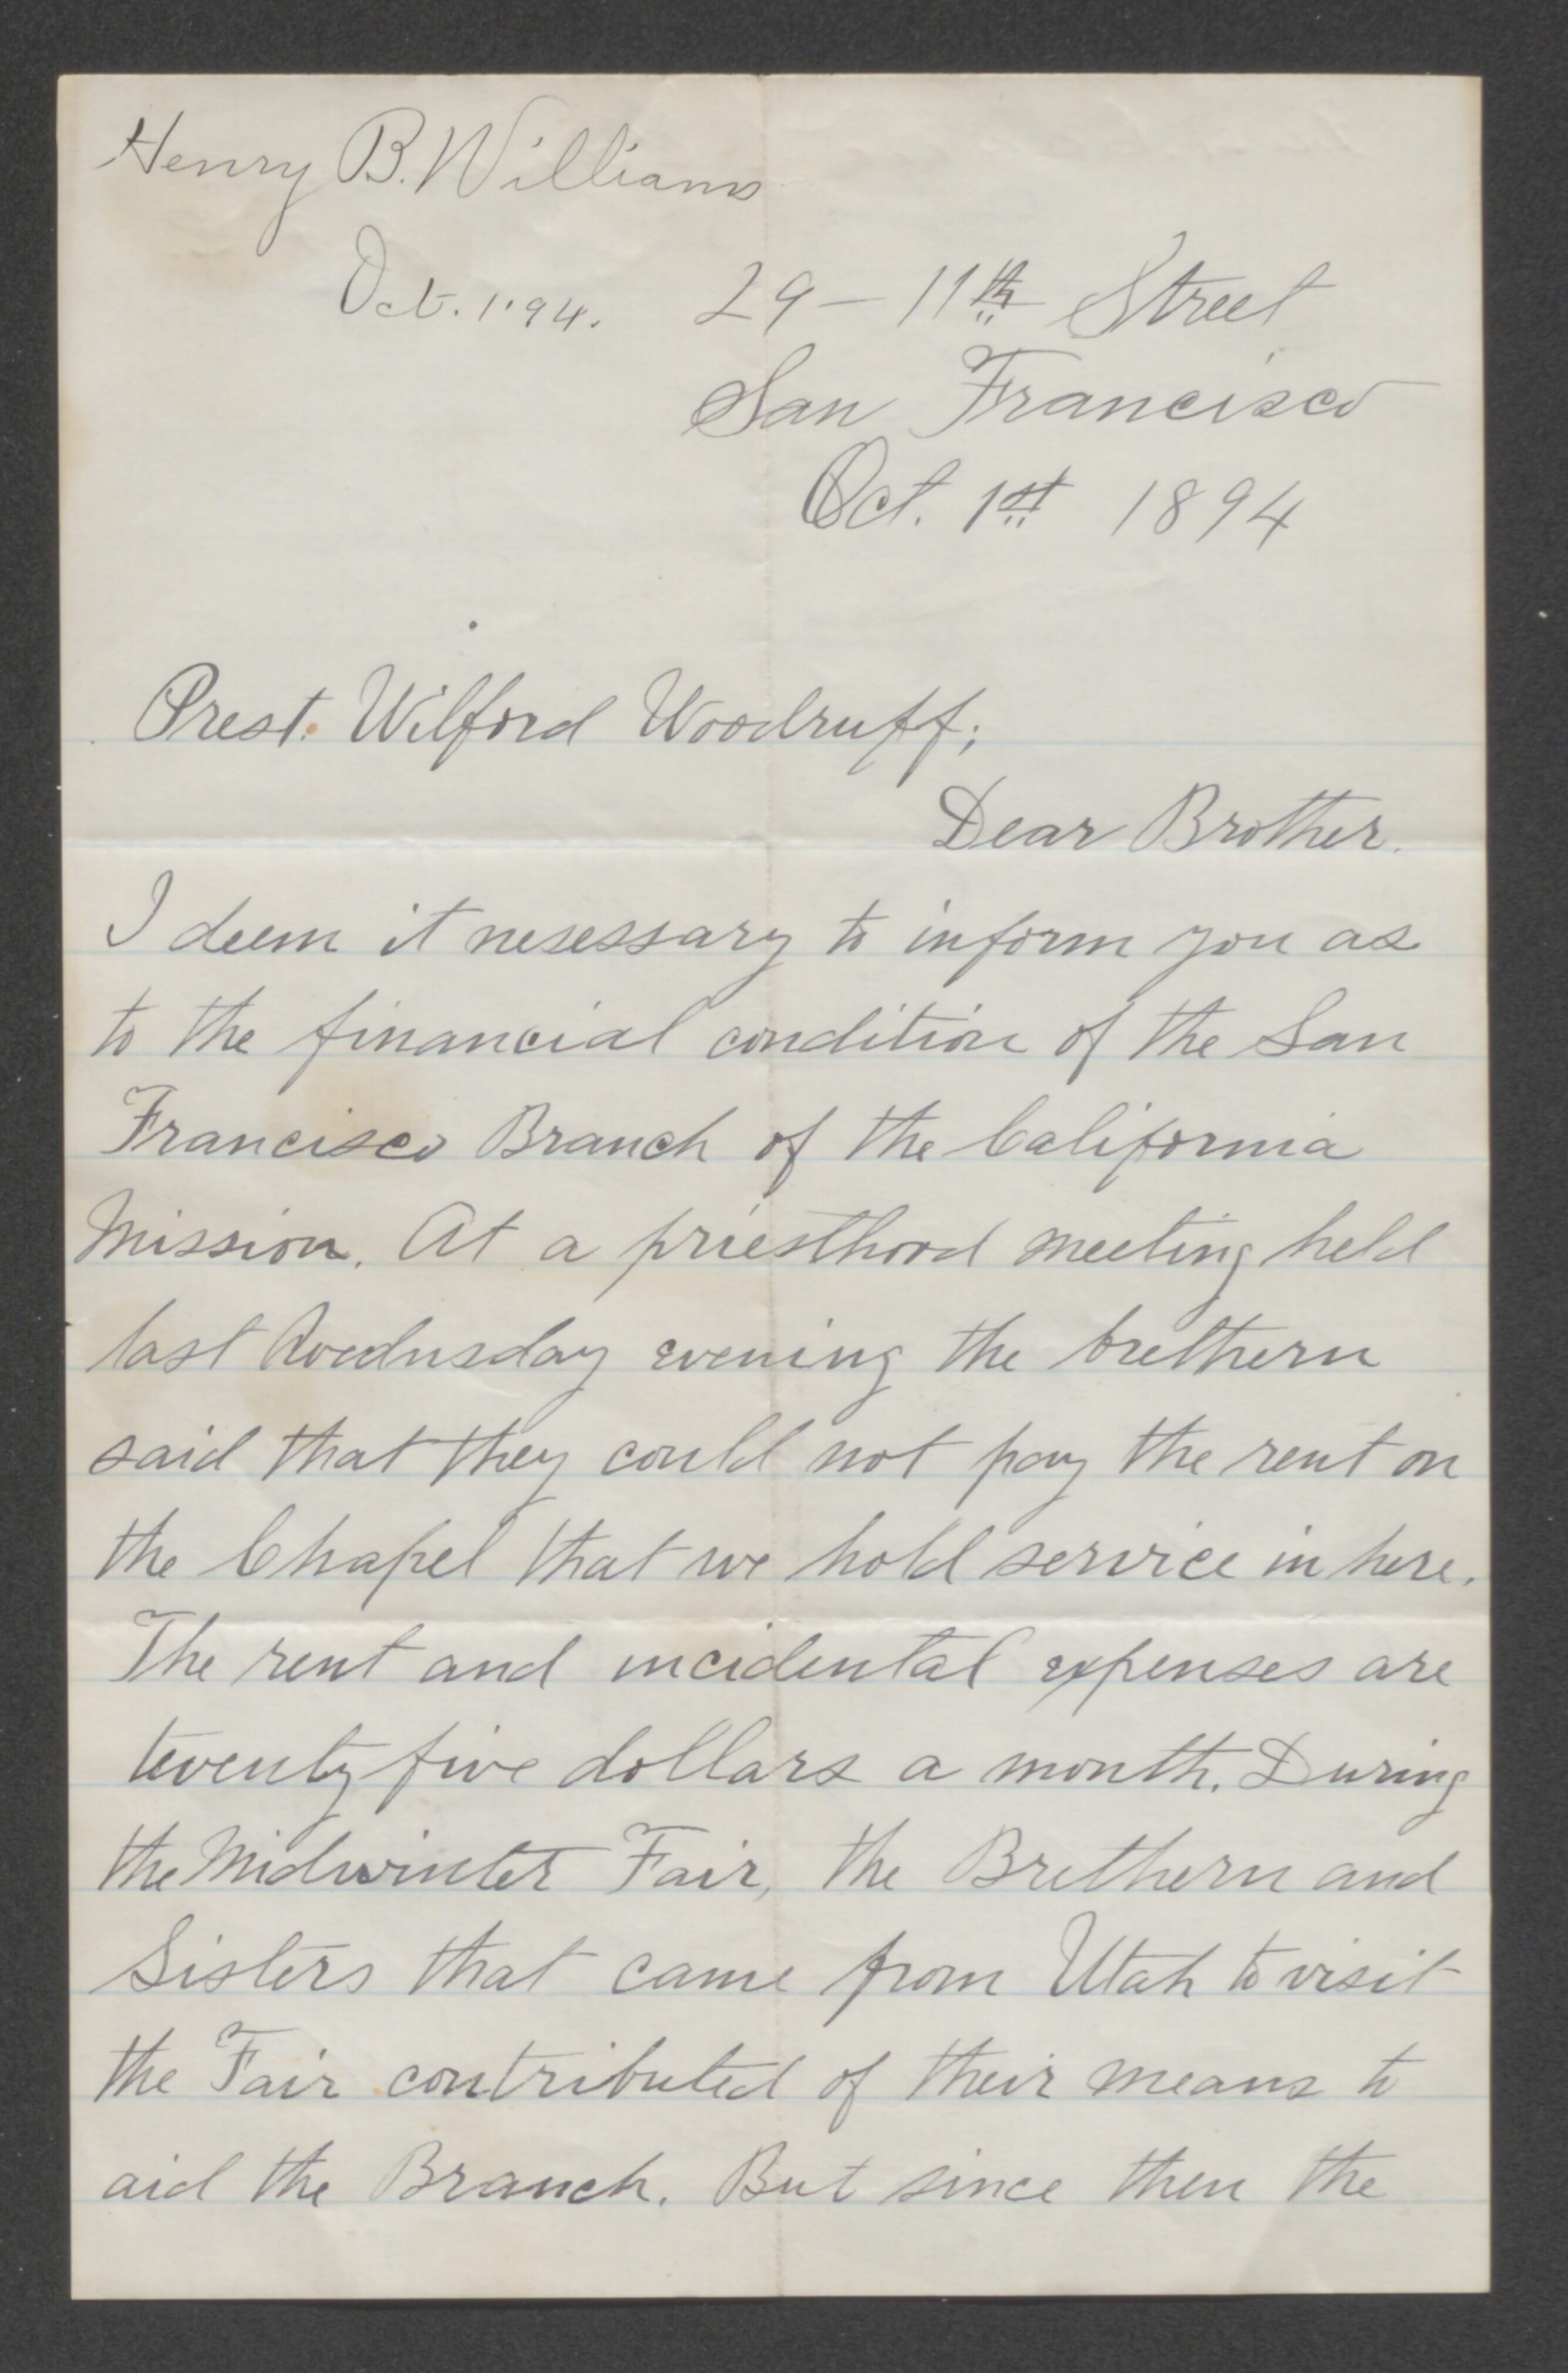 Henry B. Williams
Oct. 1 '94.
29 – 11th Street
San Francisco
Oct. 1st 1894
Prest. Wilford Woodruff;
Dear Brother.
I deem it nesessary to inform you as
to the financial condition of the San
Francisco Branch of the California
Mission. At a priesthood meeting held
last Wednesday evening the brethern
said that they could not pay the rent on
the Chapel that we hold service in here.
The rent and incidental expenses are
twenty five dollars a month. During
the Midwinter Fair, the Brethern and
Sisters that came from Utah to visit
the Fair contributed of their means to
aid the Branch. But since then the